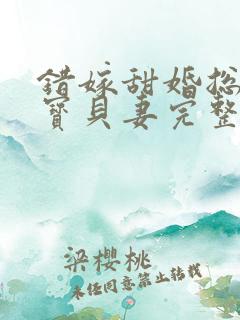 錯嫁甜婚總
寶貝妻完整
梁櫻桃
未經同意禁止轉載